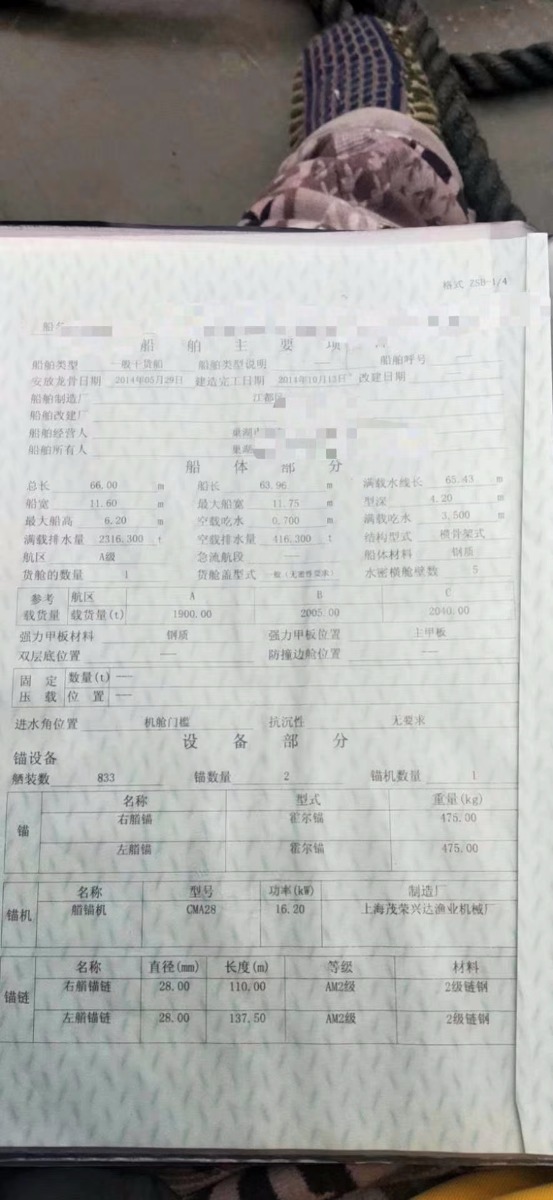 格式 ZSB-1/4
船名
船 舶 主 要 项
船舶类型 一般干货船 船舶类型说明 —— 船舶呼号 ——
安放龙骨日期 2014年05月29日 建造完工日期 2014年10月13日 改建日期 ——
船舶制造厂 江都
船舶改建厂
船舶经营人 巢湖市
船舶所有人 巢湖
船 体 部 分
总长 66.00 m 船长 63.96 m 满载水线长 65.43 m
船宽 11.60 m 最大船宽 11.75 m 型深 4.20 m
最大船高 6.20 m 空载吃水 0.700 m 满载吃水 3.500 m
满载排水量 2316.300 t 空载排水量 416.300 t 结构型式 横骨架式
航区 A级 急流航段 —— 船体材料 钢质
货舱的数量 1 货舱盖型式 一般(无密性要求) 水密横舱壁数 5
参考载货量 航区 A B C
载货量(t) 1900.00 2005.00 2040.00
强力甲板材料 钢质 强力甲板位置 主甲板
双层底位置 —— 防撞边舱位置 ——
固定压载 数量(t) ——
位置 ——
进水角位置 机舱门槛 抗沉性 无要求
设 备 部 分
锚设备
舾装数 833 锚数量 2 锚机数量 1
锚 名称 型式 重量(kg)
右艏锚 霍尔锚 475.00
左艏锚 霍尔锚 475.00
锚机 名称 型号 功率(kW) 制造厂
艏锚机 CMA28 16.20 上海茂荣兴达渔业机械厂
锚链 名称 直径(mm) 长度(m) 等级 材料
右艏锚链 28.00 110.00 AM2级 2级链钢
左艏锚链 28.00 137.50 AM2级 2级链钢